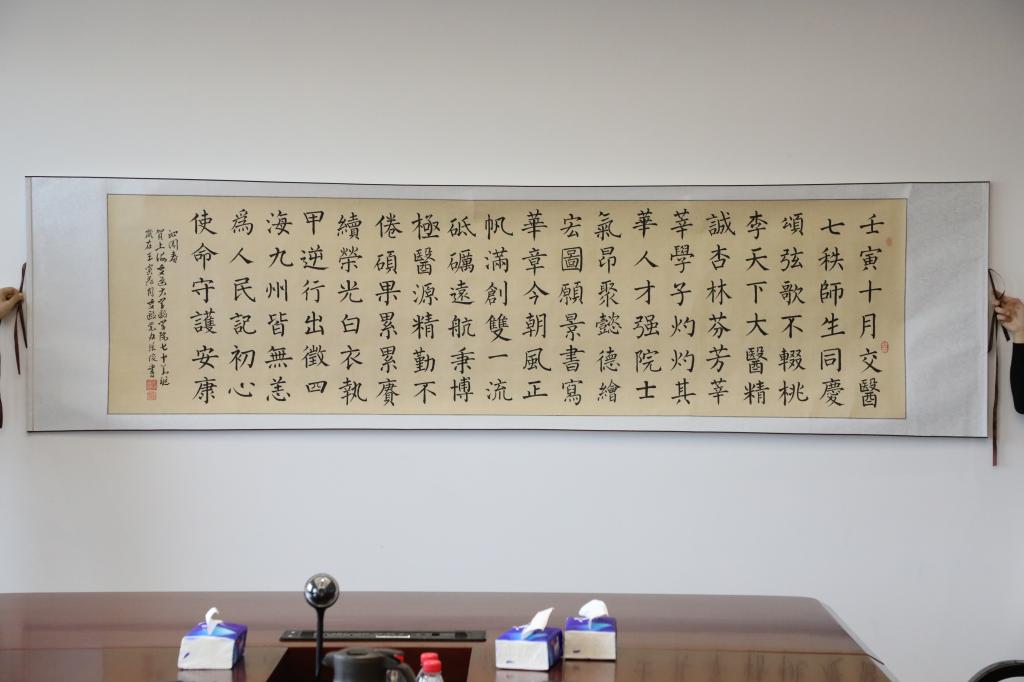 壬寅十月交醫
七秩師生同慶
頌弦歌不輟桃
李天下大醫精
誠杏林芬芳莘
莘學子灼灼其
華人才强院士
氣昂聚懿德繪
宏圖願景書寫
華章今朝風正
帆滿創雙一流
砥礪遠航秉博
極醫源精勤不
倦碩果累累賡
續榮光白衣執
甲逆行出徵四
海九州皆無恙
爲人民記初心
使命守護安康
沁園春
賀上海交通大學醫學院七十華誕
歲在壬寅